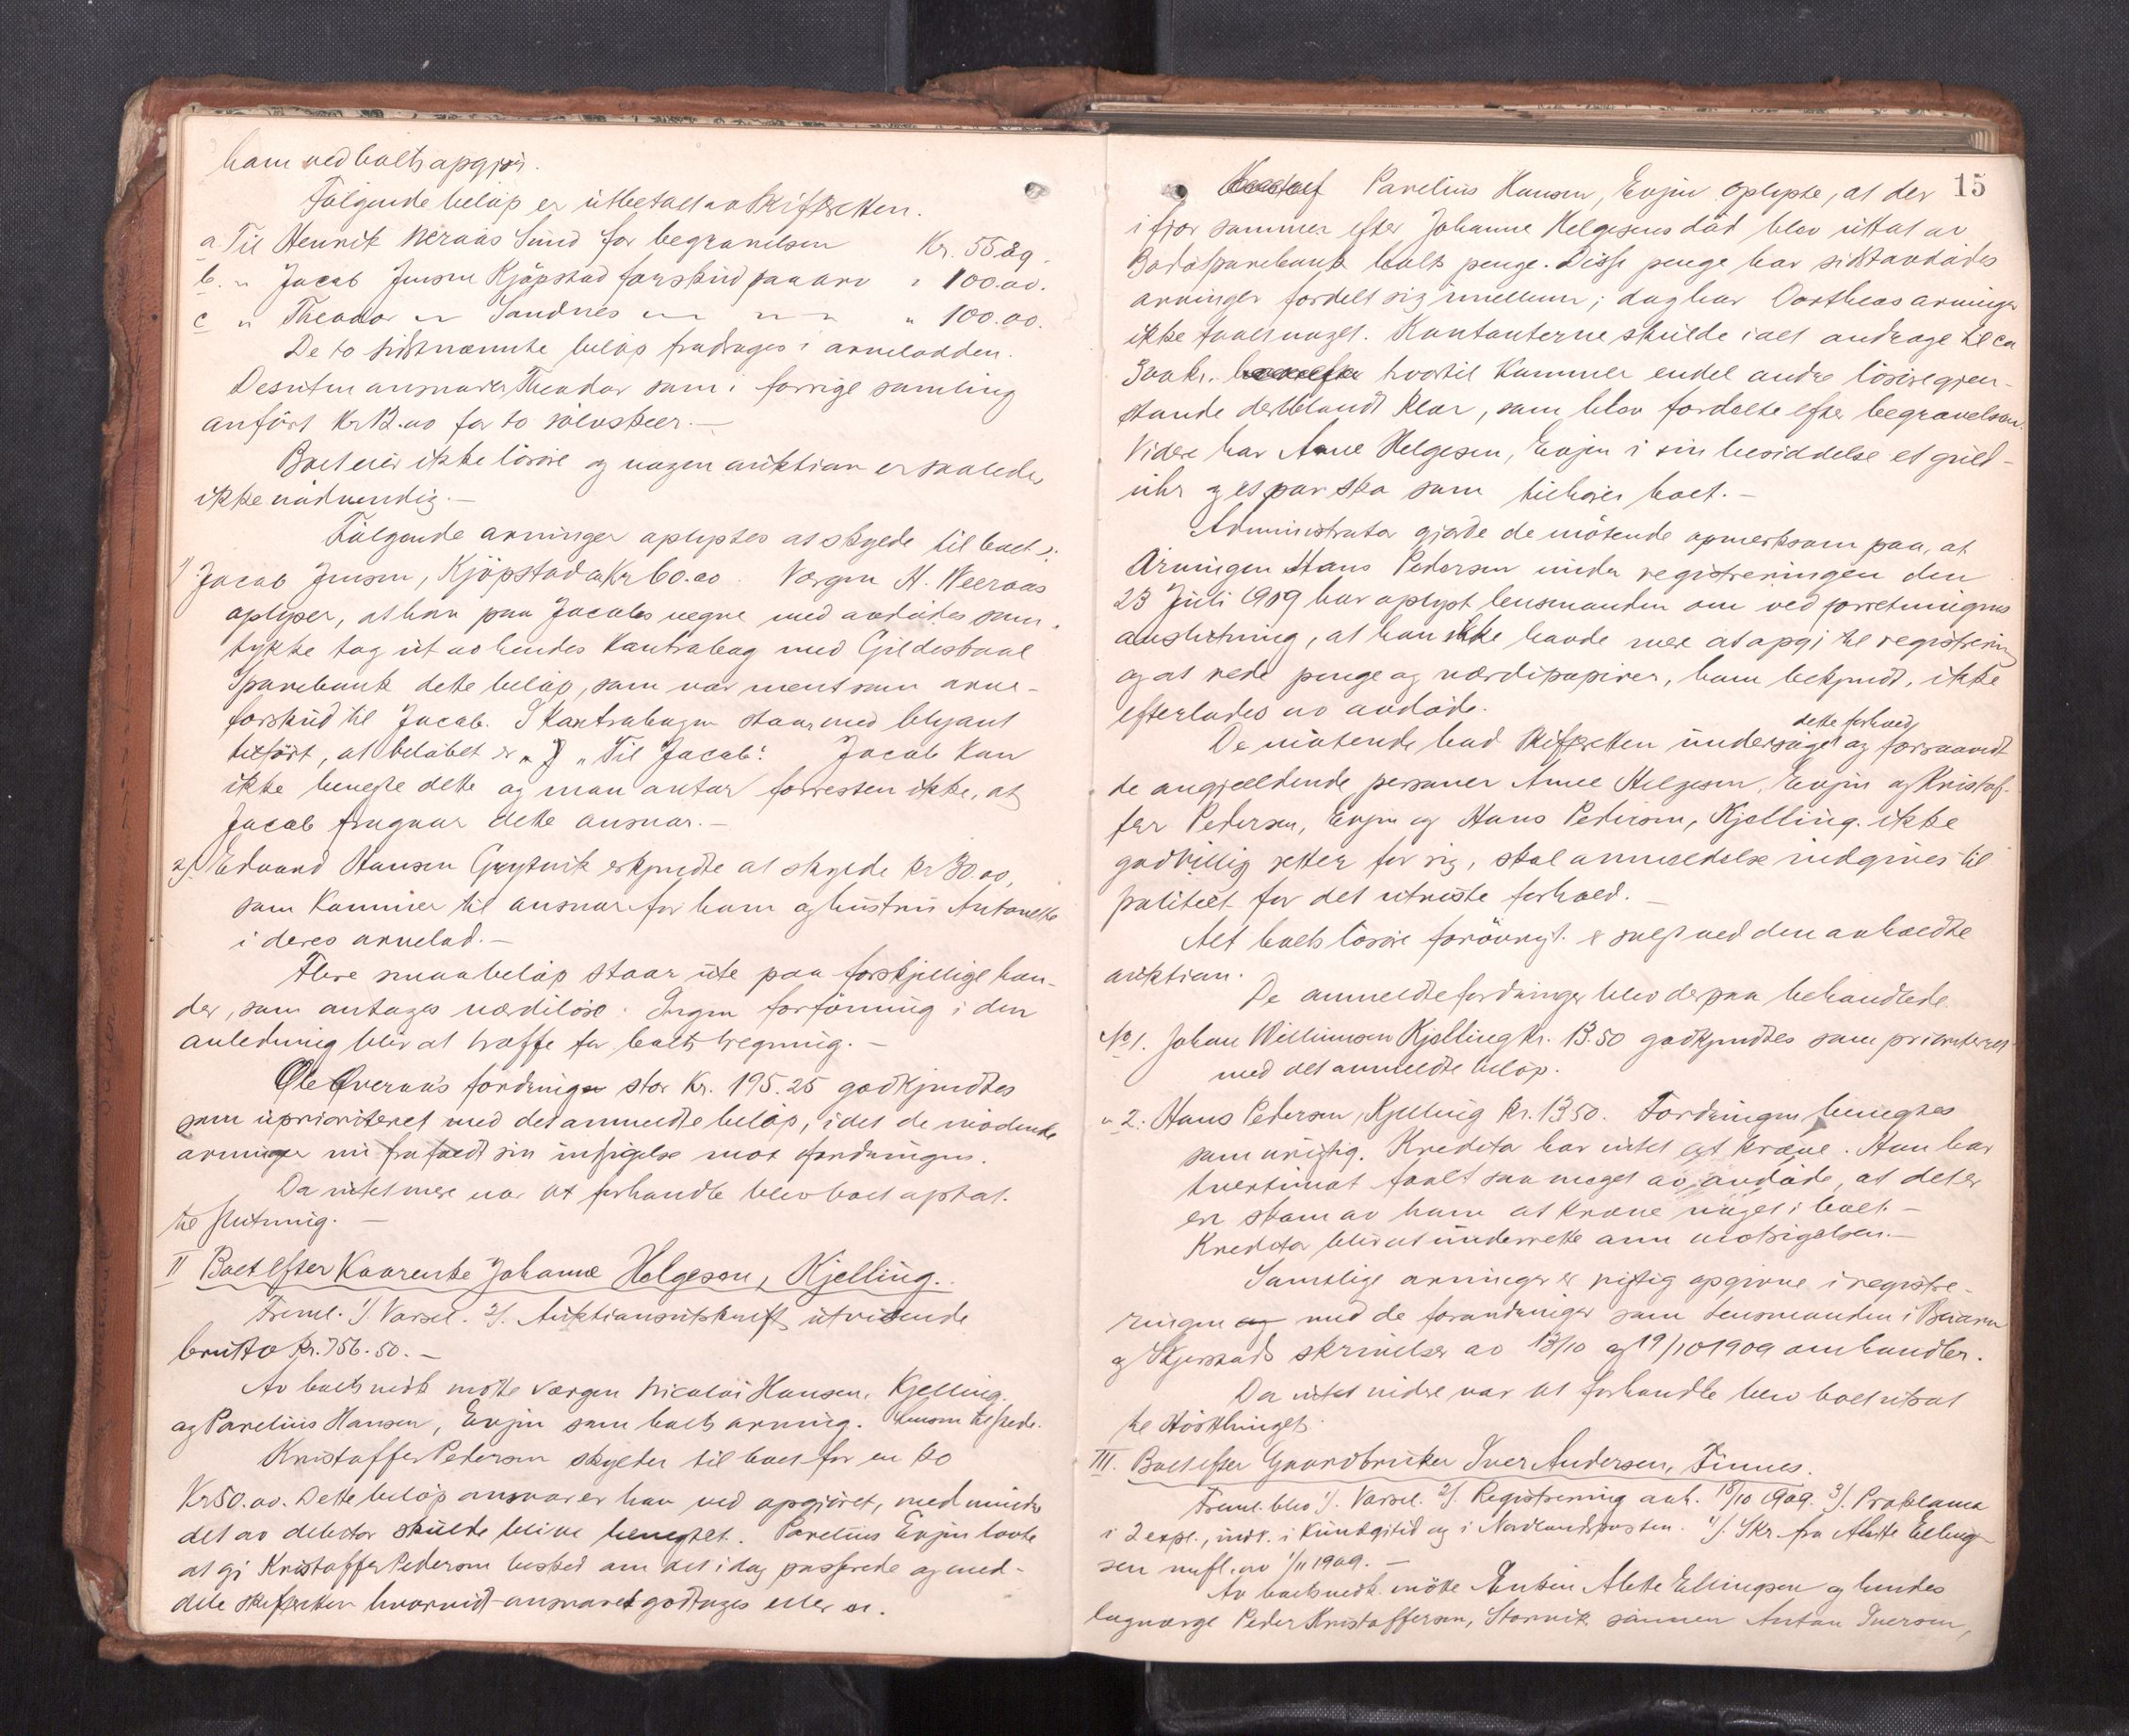 ham ved boets opgjør.
Følgende beløp er utbetalt av skifteretten.
a. Til Henrik Meraas Sund for begravelsen Kr. 55.29.
b. " Jacob Jensen Kjøpstad forskud paa arv " 100.00.
c " Theodor " Sandnes " " " " 100.00.
De to sidstnævnte beløp fradrages i arvelodden.
Desuten ansvarer Theodor som i forrige samling
anført Kr 12.00 for to sølvskeer.—
Boet eier ikke løsøre og nogen auktion er saaledes
ikke nødvendig.—
Følgende arvinger oplystes at skylde til boet:
1) Jacob Jensen, Kjøpstad Kr 60.00. Værgen H. Meeraas
oplyser, at han paa Jacobs vegne med avdødes sam-
tykke tog ut av hendes kontrabog med Gildeskaal
Sparebank dette beløp, som var ment som arve-
forskud til Jacob. I kontrabogen staar med blyant
tilført, at beløbet er "Til Jacob". Jacob kan
ikke benegte dette og man antar forresten ikke, at
Jacob fragaar dette ansvar.—
2) Edvard Hansen erkjendte at skylde kr 30.00,
som kommer til ansvar for ham og hustru Antonette
i deres arvelod.—
Flere smaabeløp staar ute paa forskjellige hæn-
der, som antages værdiløse. Ingen forføining i den
anledning blir at træffe for boets regning.—
Ole Øveraas fordringer stor Kr. 195.25 godkjendtes
som uprioriteret med det anmeldte beløp, idet de mødende
arvinger nu frafaldt sin insigelse mot fordringen.
Da intet mere var at forhandle blev boet optat
til slutning.—
II Boet efter Kaarenke Johanne Helgesen, Kjelling.
Freml. 1/. Varsel. 2/. Auktionsutskrift utvisende
brutto kr. 756.50.—
Av boets vedk. møtte værgen Nicolai Hansen, Kjelling.
og Parelius Hansen, Evjen som boets arving. Lensm tilstede.
Kristoffer Pedersen skylder til boet for en ko
Kr 50.00. Dette beløp ansvarer han ved opgjøret, med mindre
det av debitor skulde blive benegtet. Parelius Evjen lovte
at gi Kristoffer Pedersen besked om det i dag passerede og med-
dele skifteretten hvorvidt ansvaret godtages eller ei.
15
Parelius Hansen, Evjen oplyste, at der
i fjor sommer efter Johanne Helgesens død blev uttat av
Bodø Sparebank boets penge. Disse penge har sidstavdødes
arvinger fordelt sig imellem; dog har Dortheas arvinger
ikke faaet noget. Kontanterne skulde i alt andrage til ca
300 kr. hvortil kommer endel andre løsøregjen-
stande deriblandt klær, som blev fordelte efter begravelsen.
Videre har Anne Helgesen, Evjen i sin besiddelse et guld-
uhr og et par sko som tilhører boet.—
Administrator gjorde de møtende opmerksom paa, at
arvingen Hans Pedersen under registreringen den
23 Juli 1909 har oplyst lensmanden om ved forretningens
avslutning, at han ikke havde mere at opgi til registrering
og at rede penge og værdipapirer, ham bekjendt, ikke
efterlades av avdøde.
De møtende bad skifteretten undersøge dette forhold og forsaavidt
de angjældende personer Anne Helgesen, Evjen og Kristof-
fer Pedersen, Evjen og Hans Pedersen, Kjelling ikke
godvillig retter for sig, skal anmeldelse indgives til
politiet for det utviste forhold.—
Alt boets løsøre forøvrigt er solgt ved den avholdte
auktion.
De anmeldte fordringer blev derpaa behandlede
No 1. Johan Williumsen Kjelling kr. 13.50 godkjendtes som prioriteret
med det anmeldte beløp.
" 2. Hans Pedersen, Kjelling kr. 13.50. Fordringen benegtes
som uriktig. Kreditor har intet at kræve. Han har
tvertimot faaet saa meget av avdøde, at det er
en skam av ham at kræve noget i boet.—
Kreditor blir at underrette om motsigelsen.—
Samtlige arvinger er riktig opgivne i registre-
ringen med de forandringer som lensmanden i Beiarn
og Skjerstads skrivelser av 13/10 og 19/10 1909 omhandler.
Da intet videre var at forhandle blev boet utsat
til Høstthinget.
III. Boet efter Gaardbruker Iver Andersen, Finnes.
Freml. blev 1/. Varsel. 2/. Registrering avh. 18/10 1909. 3/. Proklama
i 2 expl., indr. i Kundgj.tid og i Nordlandsposten. 4/. Skr. fra Alette Elling-
sen m.fl. av 1/11 1909.—
Av boets vedk. møtte Enken Alette Ellingsen og hendes
lagværge Peder Kristoffersen, Storvik sønnen Anton Iversen,